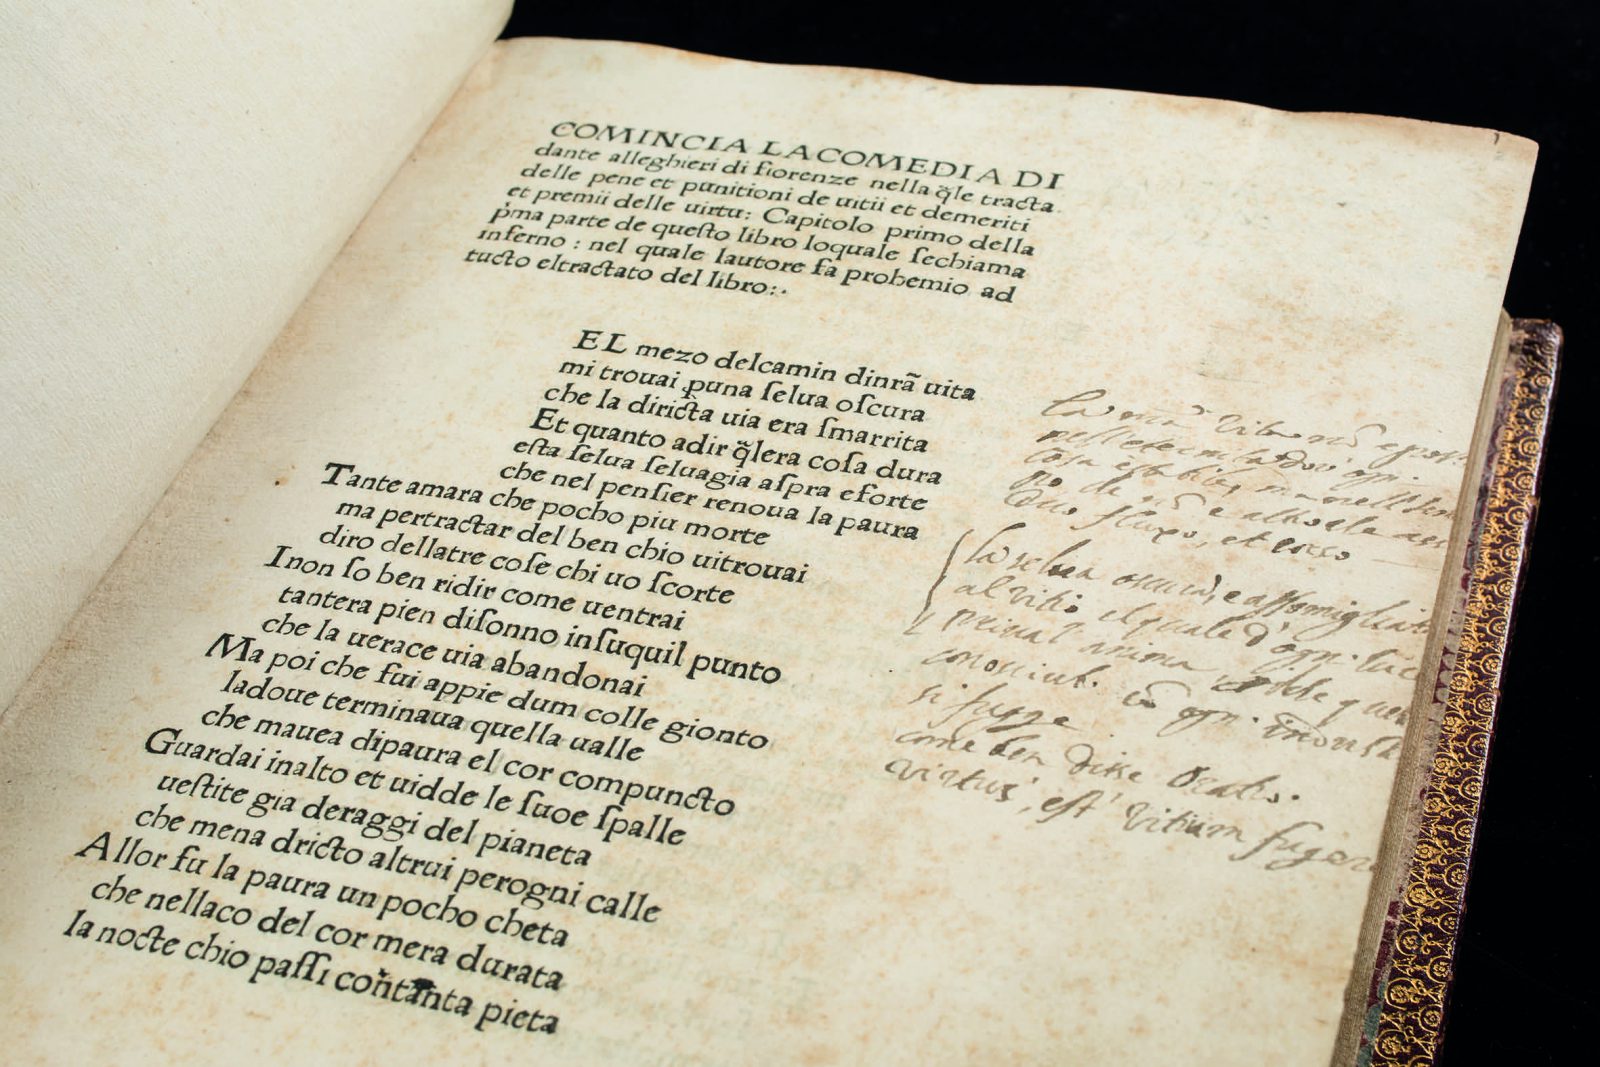 COMINCIA LACOMEDIA DI
dante alleghieri di fiorenze nella q̃le tracta
delle pene et punitioni de uitii et demeriti
et premii delle uirtu: Capitolo primo della
p̃ma parte de queſto libro loquale ſechiama
inferno : nel quale lautore fa probemio ad
tucto eltractato del libro:.
EL mezo delcamin dinrã uita
mi trouai ꝑuna ſelua oſcura
che la diricta uia era ſmarrita
Et quanto adir q̃lera coſa dura
eſta ſelua ſeluagia aſpra eforte
che nel penſier renoua la paura
Tante amara che pocho piu morte
ma pertractar del ben chio uitrouai
diro dellatre coſe chi uo ſcorte
Inon ſo ben ridir come uentrai
tantera pien diſonno inſuquil punto
che la uerace uia abandonai
Ma poi che fui appie dum colle gionto
ladoue terminaua quella ualle
che mauea dipaura el cor compuncto
Guardai inalto et uidde le ſuoe ſpalle
ueſtite gia deraggi del pianeta
che mena dricto altrui perogni calle
Allor fu la paura un pocho cheta
che nellaco del cor mera durata
la nocte chio paſſi coñtanta pieta
la selua oscura, e assomigliat
al vitio il quale d' ogn. luce
priua l' anima
si fugge
come ben disse Oratio.
virtus, est vitium fugere